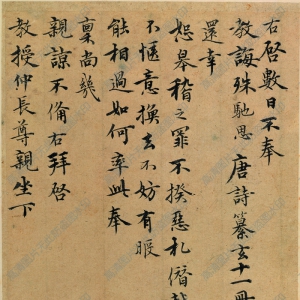 右啓數日不奉
教誨殊馳思唐詩纂玄十一冊
還幸
恕畢稽之罪不揆惡札僭
不愜意換去不妨有暇
能相過如何率此奉
稟尚几
親諒不備右拜啓
教授仲長尊親坐下